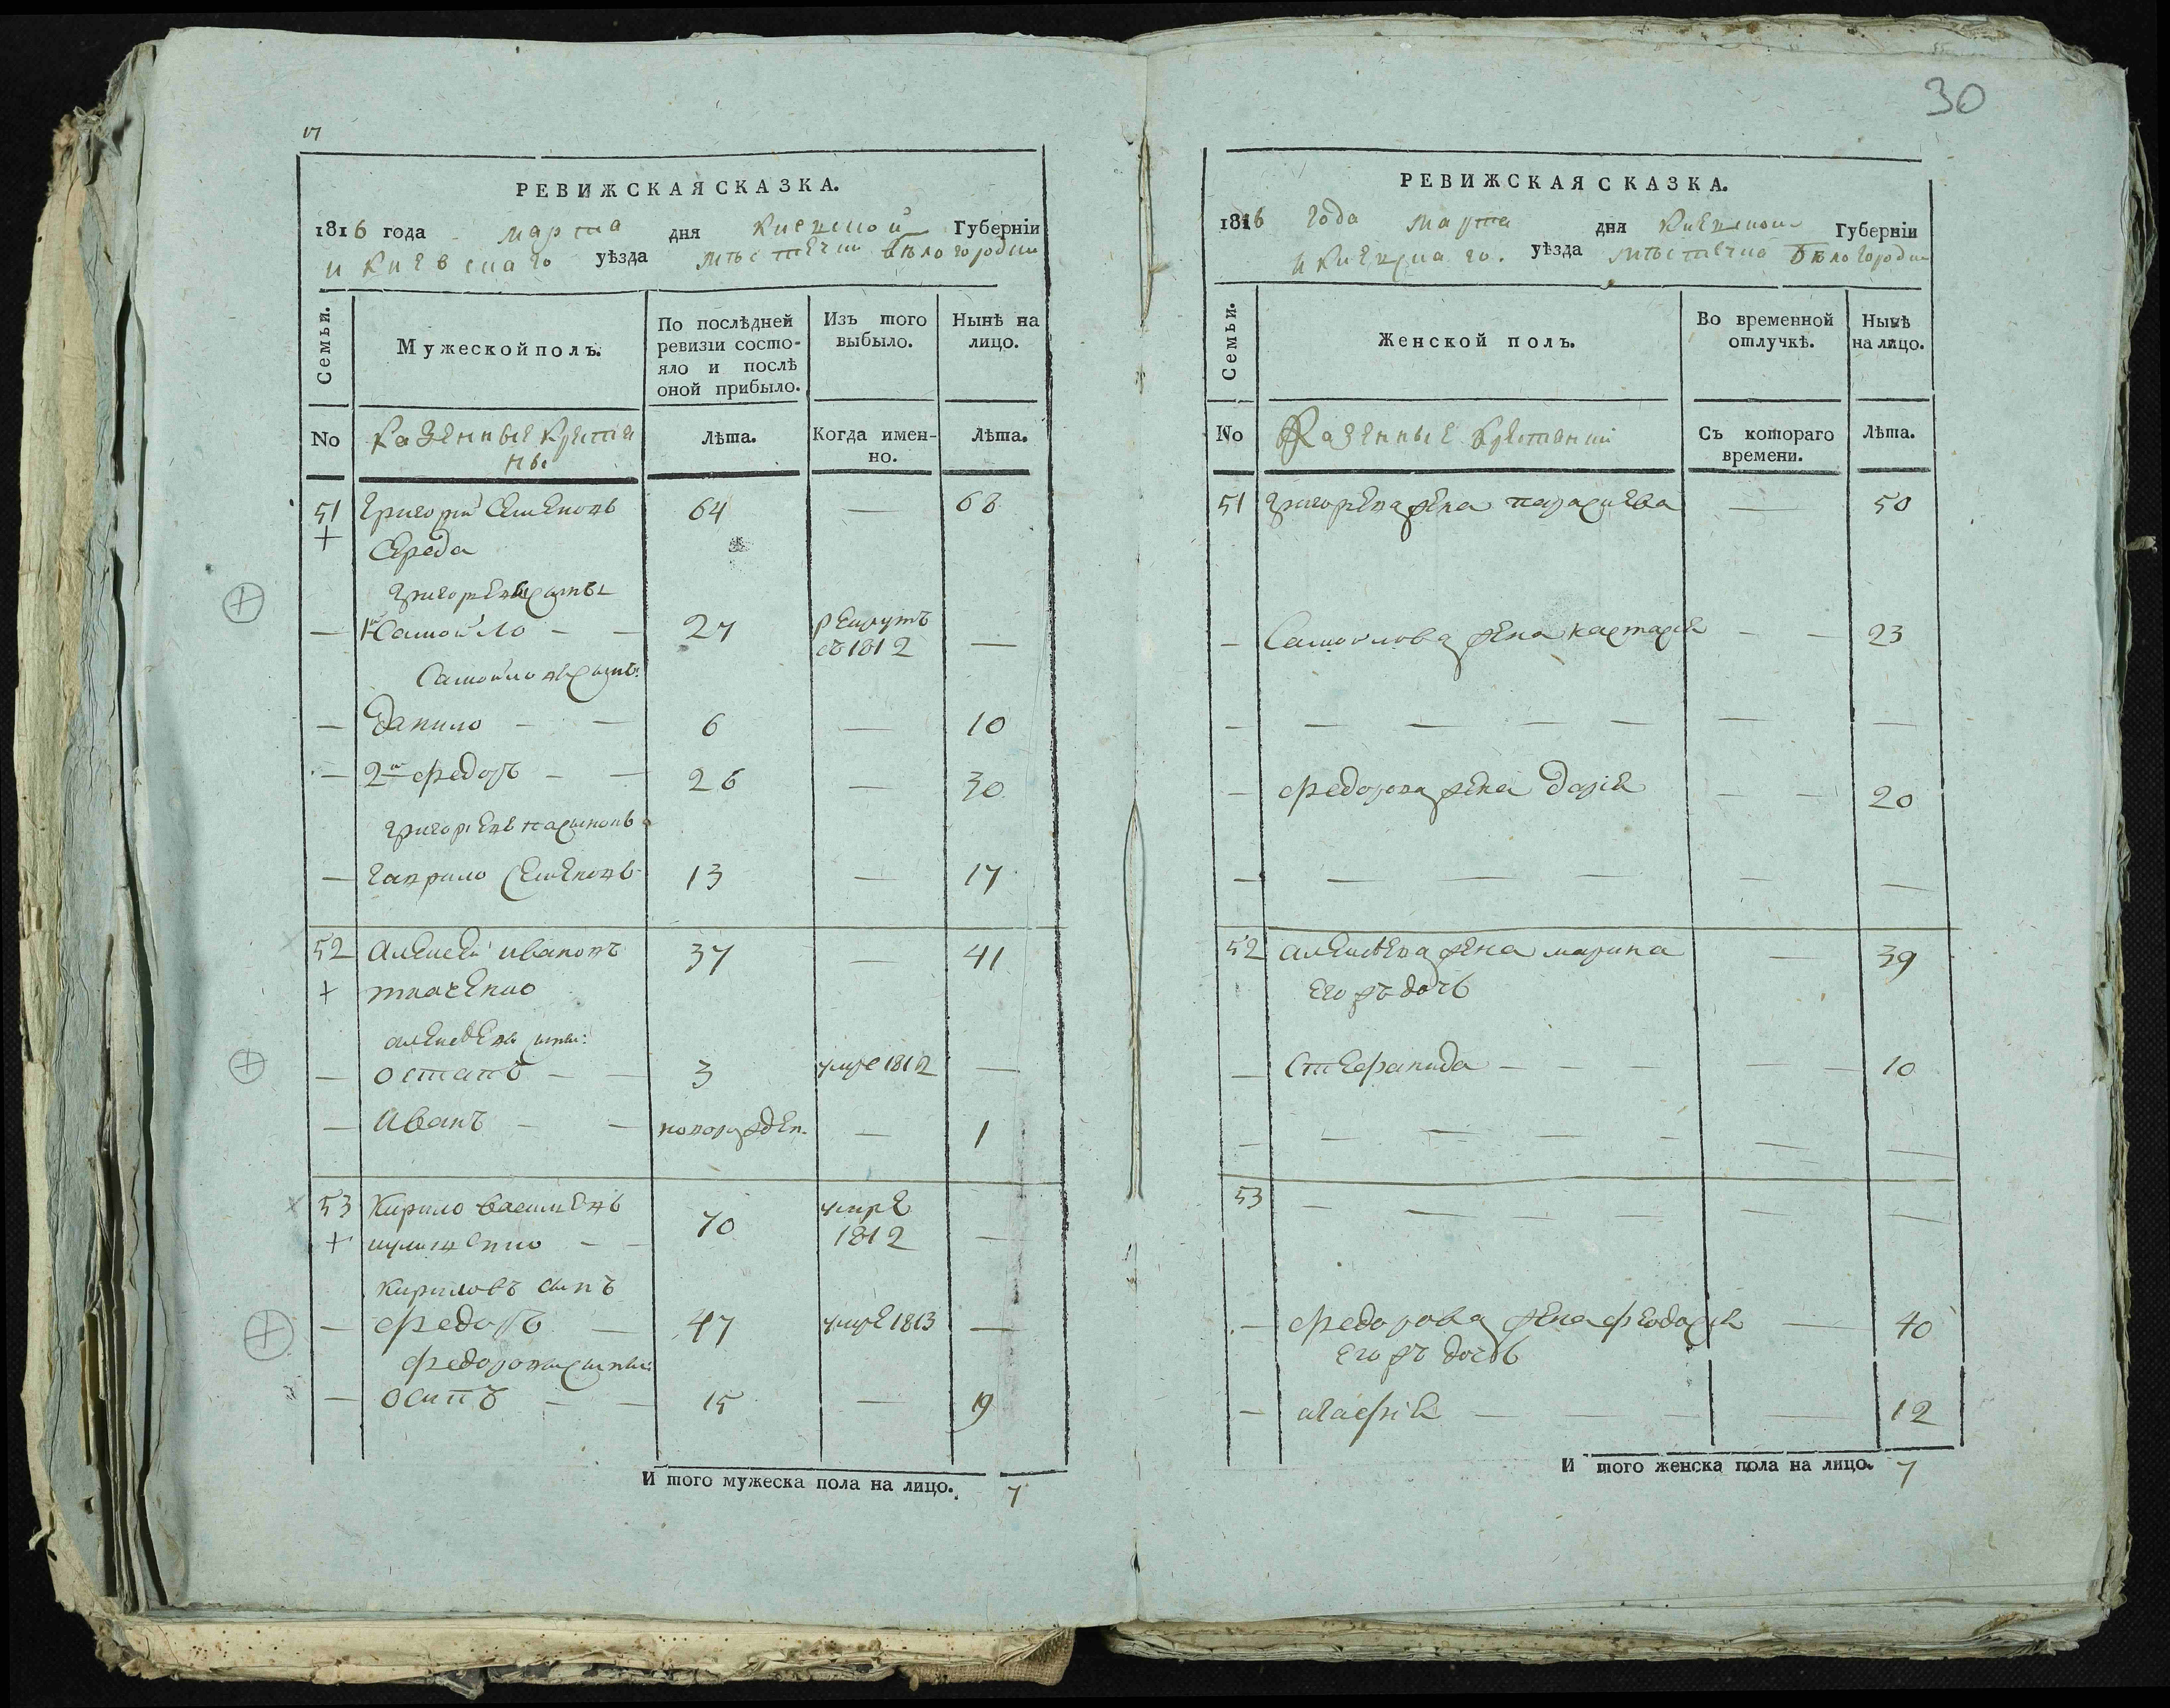 17
РЕВИЖСКАЯ СКАЗКА.
1816 года марта дня Киевской Губерніи
и Киевскаго уѣзда мѣстечки Бѣлогородки
Семьи.
Мужеской полъ.
По послѣдней ревизіи состо-
яло и послѣ
оной прибыло.
Изъ того
выбыло.
Нынѣ на
лицо.
No
Казенные крестя
ны
Лѣта.
Когда имен-
но.
Лѣта.
51 Григорій Семеновъ 64 — 68
+ Середа
Григорьевы сыны
— 1й Самойло — — 27 рекрутъ
въ 1812 —
Самойловы сынъ:
— Данило — — 6 — 10
— 2й Федоръ — — 26 — 30
Григорьевъ пасынокъ
— Гаврило Семеновъ 13 — 17
52 Алексей Ивановъ 37 — 41
+ Ткаченко
Алексѣевы сыны:
— Остапъ — — 3 умре 1812 —
— Иванъ — — новорожден. — 1
53 Кирило Васильевъ 70 умре
1812 —
+
Кириловъ сынъ
— Федоръ — 47 умре 1813 —
Федоровы сыны:
— Осипъ — — 15 — 19
И того мужеска пола на лицо. 7
30
РЕВИЖСКАЯ СКАЗКА.
1816 года марта дня Киевской Губерніи
и Киевскаго. уѣзда мѣстечка Бѣлогородки
Семьи.
Женской полъ.
Во временной
отлучкѣ.
Нынѣ
на лицо.
No
Казенные крестянки
Съ котораго
времени.
Лѣта.
51 Григорьева жена Параскева — 50
— Самойлова жена Настасія — — 23
— — — — — — —
— Федорова жена Дарія — — 20
— — — — — —
52 Алексѣева жена Марина — 39
Его жъ дочь
— Стефанида — — — — — 10
— — — — — — —
53 — — — — — —
— Федорова жена Феодосія — 40
Его жъ дочь
— Агафія — — — — 12
И того женска пола на лицо. 7